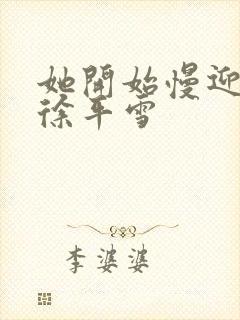 她開始慢迎
徐平雪
李婆婆